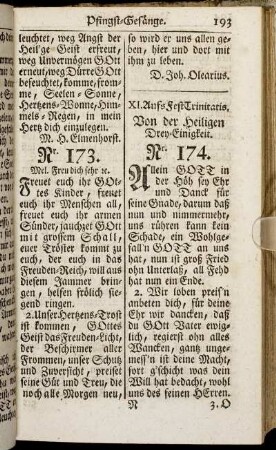 Pfingst-Gesänge. 193
leuchtet, weg Angst der
Heil'ge Geist erfreut,
weg Unvermögen GOtt
erneut, weg Dürre GOtt
befeuchtet, komme, from-
me Seelen-Sonne,
Hertzens-Wonne, Him-
mels-Regen, in mein
Hertz dich einzulegen.
M. H. Elmenhorst.
Nr. 173.
Mel. Freu dich sehr ꝛc.
Freuet euch ihr GOt-
tes Kinder, freuet
euch ihr Menschen all,
freuet euch ihr armen
Sünder, jauchzet GOtt
mit grossem Schall,
euer Tröster kommt zu
euch, der euch in das
Freuden-Reich, will aus
diesem Jammer brin-
gen, helfen frölich sie-
gend ringen.
2. Unser Hertzens-Trost
ist kommen, GOttes
Geist das Freuden-Licht,
der Beschirmer aller
Frommen, unser Schutz
und Zuversicht, preiset
seine Güt und Treu, die
noch alle Morgen neu,
so wird er uns allen ge-
ben, hier und dort mit
ihm zu leben.
D. Joh. Olearius.
XI. Aufs Fest Trinitatis,
Von der Heiligen
Drey-Einigkeit.
Nr. 174.
Allein GOTT in
der Höh sey Ehr
und Danck für
seine Gnade, darum daß
nun und nimmermehr,
uns rühren kann kein
Schade, ein Wohlge-
fall'n GOTT an uns
hat, nun ist groß Fried
ohn Unterlaß, all Fehd
hat nun ein Ende.
2. Wir loben preis'n
anbeten dich, für deine
Ehr wir dancken, daß
du GOtt Vater ewig-
lich, regierst ohn alles
Wancken, gantz unge-
mess'n ist deine Macht,
fort g'schicht was dein
Will hat bedacht, wohl
uns des feinen HErren.
N 3. O